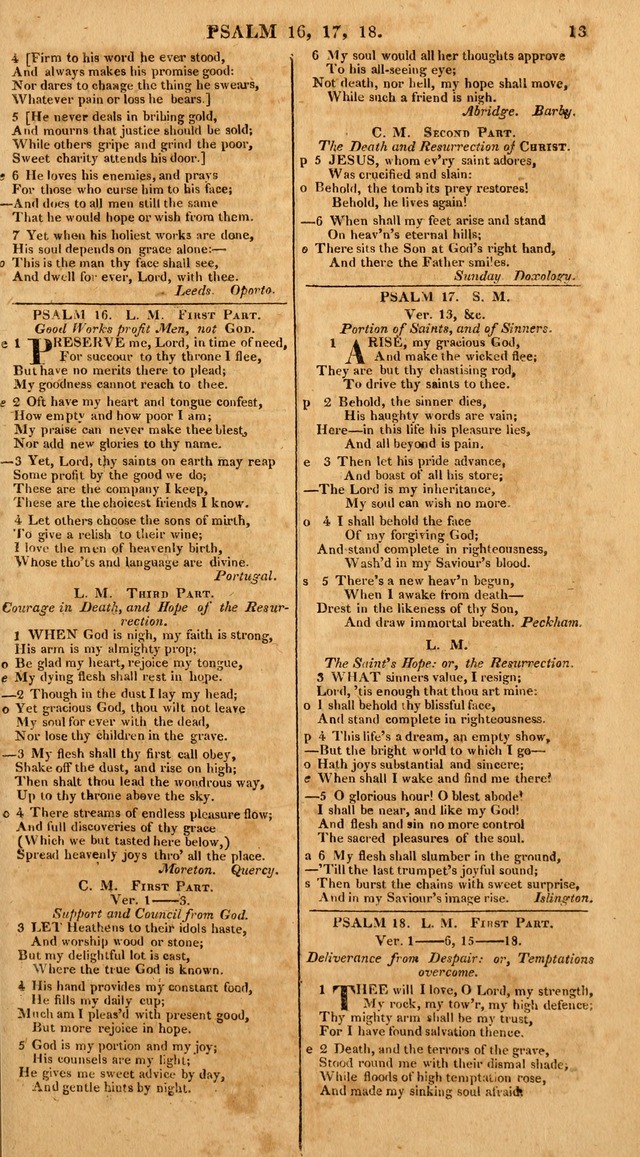 PSALM 16, 17, 18. 13
4 [Firm to his word he ever stood,
And always makes his promise good:
Nor dares to change the thing he swears,
Whatever pain or loss he bears.]
5 [He never deals in bribing gold,
And mourns that justice should be sold;
While others gripe and grind the poor,
Sweet charity attends his door.]
e 6 He loves his enemies, and prays
For those who curse him to his face;
—And does to all men still the same
That he would hope or wish from them.
7 Yet when his holiest works are done,
His soul depends on grace alone:—
o This is the man thy face shall see,
And dwell for ever, Lord, with thee.
Leeds. Oporto.
PSALM 16. L. M. First Part.
Good Works profit Men, not God.
e 1 PRESERVE me, Lord, in time of need,
For succour to thy throne I flee,
But have no merits there to plead;
My goodness cannot reach to thee.
e 2 Oft have my heart and tongue confest,
How empty and how poor I am;
My praise can never make thee blest,
Nor add new glories to thy name.
—3 Yet, Lord, thy saints on earth may reap
Some profit by the good we do;
These are the company I keep,
These are the choicest friends I know.
4 Let others choose the sons of mirth,
To give a relish to their wine;
I love the men of heavenly birth,
Whose tho'ts and language are divine.
Portugal.
L. M. Third Part.
Courage in Death, and Hope of the Resur-
rection.
1 WHEN God is nigh, my faith is strong,
His arm is my almighty prop;
o Be glad my heart, rejoice my tongue,
e My dying flesh shall rest in hope.
—2 Though in the dust I lay my head;
o Yet gracious God, thou wilt not leave
My soul for ever with the dead,
Nor lose thy children in the grave.
—3 My flesh shall thy first call obey,
Shake off the dust, and rise on high;
Then shalt thou lead the wondrous way,
Up to thy throne above the sky.
o 4 There streams of endless pleasure flow;
And full discoveries of thy grace
(Which we but tasted here below,)
Spread heavenly joys thro' all the place.
Moreton. Quercy.
C. M. First Part.
Ver. 1——3.
Support and Council from God.
3 LET Heathens to their idols haste,
And worship wood or stone;
But my delightful lot is cast,
Where the true God is known.
4 His hand provides my constant food,
He fills my daily cup;
Much am I pleas'd with present good,
But more rejoice in hope.
5 God is my portion and my joy;
His counsels are my light;
He gives me sweet advice by day,
And gentle hints by night.
6 My soul would all her thoughts approve
To his all-seeing eye;
Not death, nor hell, my hope shall move,
While such a friend is nigh.
Abridge. Barby.
C. M. Second Part.
The Death and Resurrection of Christ.
p 5 JESUS, whom ev'ry saint adores,
Was crucified and slain:
o Behold, the tomb its prey restores!
Behold, he lives again!
—6 When shall my feet arise and stand
On heav'n's eternal hills;
o There sits the Son at God's right hand,
And there the Father smiles.
Sunday Doxology.
PSALM 17. S. M.
Ver. 13, &c.
Portion of Saints, and of Sinners.
1 ARISE, my gracious God,
And make the wicked flee;
They are but thy chastising rod,
To drive thy saints to thee.
p 2 Behold, the sinner dies,
His haughty words are vain;
Here—in this life his pleasure lies,
And all beyond is pain.
e 3 Then let his pride advance,
And boast of all his store;
—The Lord is my inheritance,
My soul can wish no more.
o 4 I shall behold the face
Of my forgiving God;
And stand complete in righteousness,
Wash'd in my Saviour's blood.
s 5 There's a new heav'n begun,
When I awake from death—
Drest in the likeness of thy Son,
And draw immortal breath. Peckham.
L. M.
The Saint's Hope: or, the Resurrection.
3 WHAT sinners value, I resign;
Lord, 'tis enough that thou art mine:
o I shall behold thy blissful face,
And stand complete in righteousness.
p 4 This life's a dream, an empty show,
—But the bright world to which I go—
o Hath joys substantial and sincere;
e When shall I wake and find me there?
—5 O glorious hour! O blest abode!
I shall be near, and like my God!
And flesh and sin no more control
The sacred pleasures of the soul.
a 6 My flesh shall slumber in the ground,
—'Till the last trumpet's joyful sound;
s Then burst the chains with sweet surprise,
And in my Saviour's image rise. Islington.
PSALM 18. L. M. First Part.
Ver. 1——6, 15——18.
Deliverance from Despair: or, Temptations
overcome.
1 THEE will I love, O Lord, my strength,
My rock, my tow'r, my high defence;
Thy mighty arm shall be my trust,
For I have found salvation thence.
e 2 Death, and the terrors of the grave,
Stood round me with their dismal shade;
While floods of high temptation rose,
And made my sinking soul afraid.